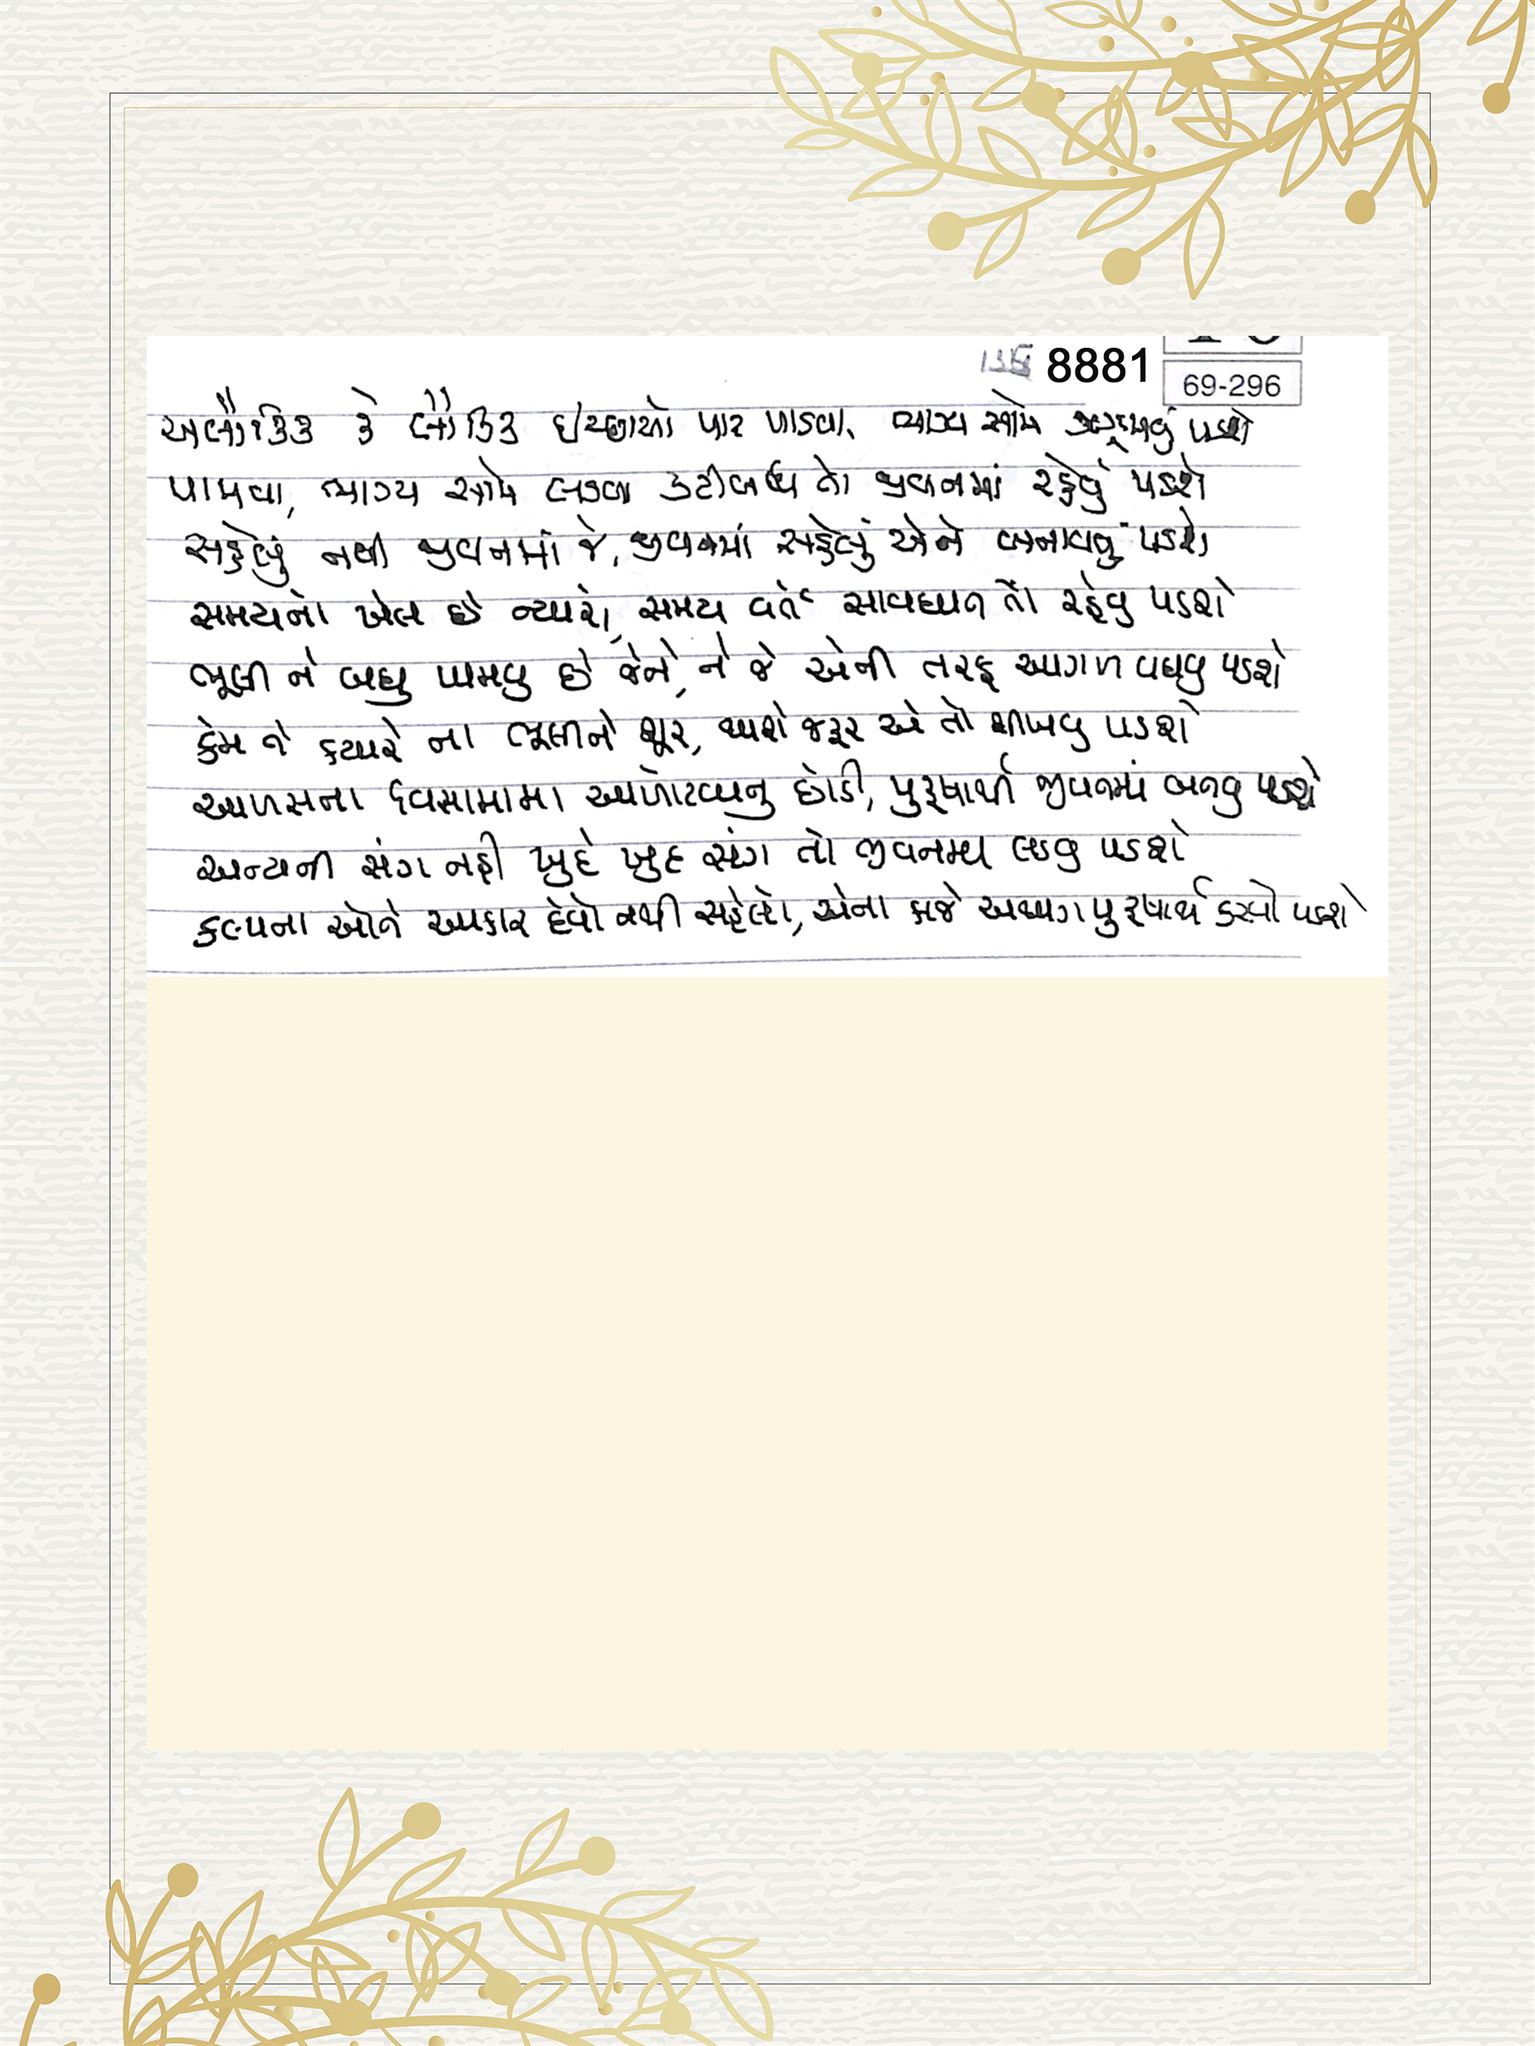 8881
69-296
અલૌકિક કે લૌકિક ઇચ્છાઓ પાર પાડવા, ભાગ્ય સામે ઝઝૂમવું પડશે
પામવા, ભાગ્ય સામે લડવા કટીબધ્ધ તો જીવનમાં રહેવું પડશે
સહેલું નથી જીવનમાં જે, જીવનમાં સહેલું એને બનાવવું પડશે
સમયનો ખેલ છે ન્યારો, સમય વર્તે સાવધાન તો રહેવુ પડશે
ભૂલીને બધુ પામવુ છે જેને, ને જે એની તરફ આગળ વધવુ પડશે
કેમ ને ક્યારે ના ભૂલીને શૂર, થાશે જરૂર એ તો શીખવુ પડશે
આળસના દિવસામામા આળોટવાનુ છોડી, પુરૂષાર્થી જીવનમાં બનવુ પડશે
અન્યની સંગ નહી ખુદે ખુદ સંગ તો જીવનમા લડવુ પડશે
કલ્પના ઓને આકાર દેવો નથી સહેલો, એના કાજે અથાગ પુરૂષાર્થ કરવો પડશે